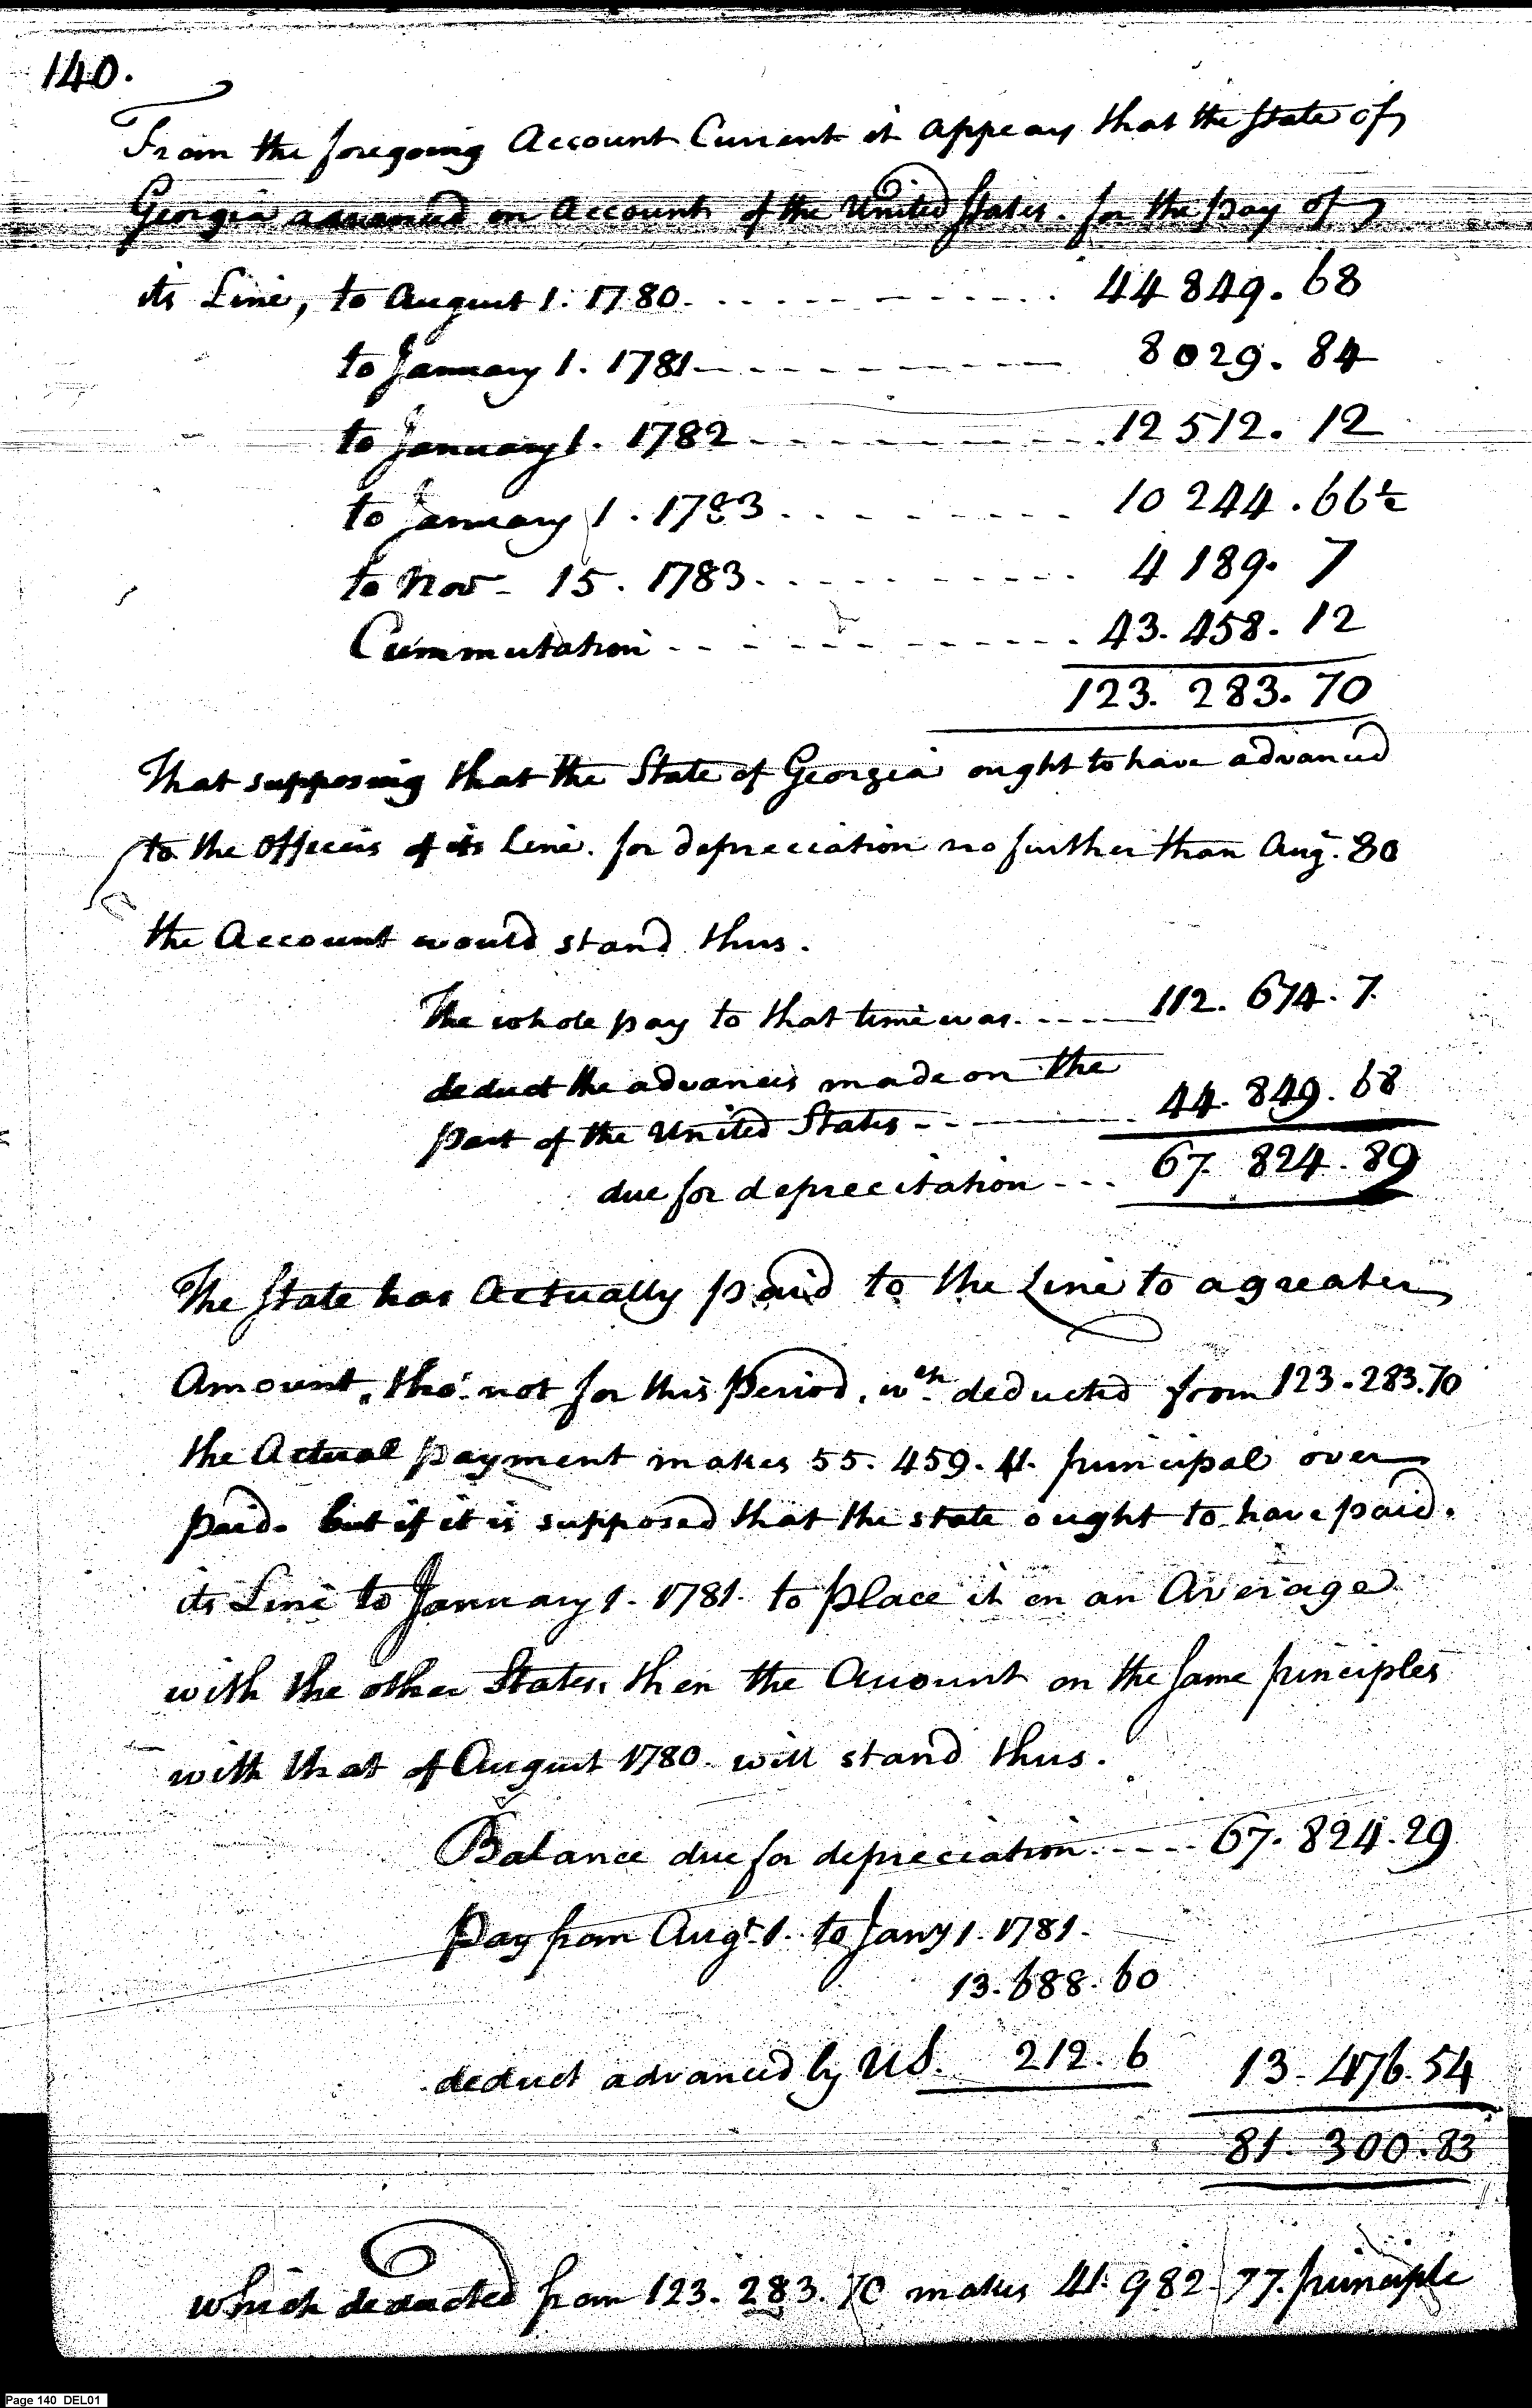 140.
From the foregoing Account Current it appears that the State of
Georgia advanced on Account of the United States. for the pay of
its Line, to August 1. 1780. 44 849. 68
to January 1. 1781 8029. 84
to January 1. 1782 12 512. 12
to January 1. 1783 10 244. 66½
to Nov - 15. 1783 4 189. 7
Cummutation 43. 458. 12
123. 283. 70
That supposing that the State of Georgia ought to have advanced
to the Officers of its Line. for depreciation no further than Aug. 80
the Account would stand thus.
The whole pay to that time was. 112. 674. 7.
deduct the advances made on the
part of the United States 44. 849. 68
due for deprecitation 67. 824. 89
The State has Actually paid to the Line to a greater
Amount, tho' not for this Period. wch deducted from 123. 283. 70
the Actual payment makes 55. 459. 41. principal over
paid. but if it is supposed that the state ought to have paid.
its Line to January 1. 1781. to place it on an Average
with the other States. then the Account on the same principles
with that of August 1780. will stand thus.
Balance due for depreciation 67. 824. 29
Pay from Augt. 1. to Jany 1. 1781.
13. 688. 60
deduct advanced by US. 212. 6 13. 476. 54
81. 300. 83
which deducted from 123. 283. 70 makes 41. 982. 77. principle
Page 140 DEL01